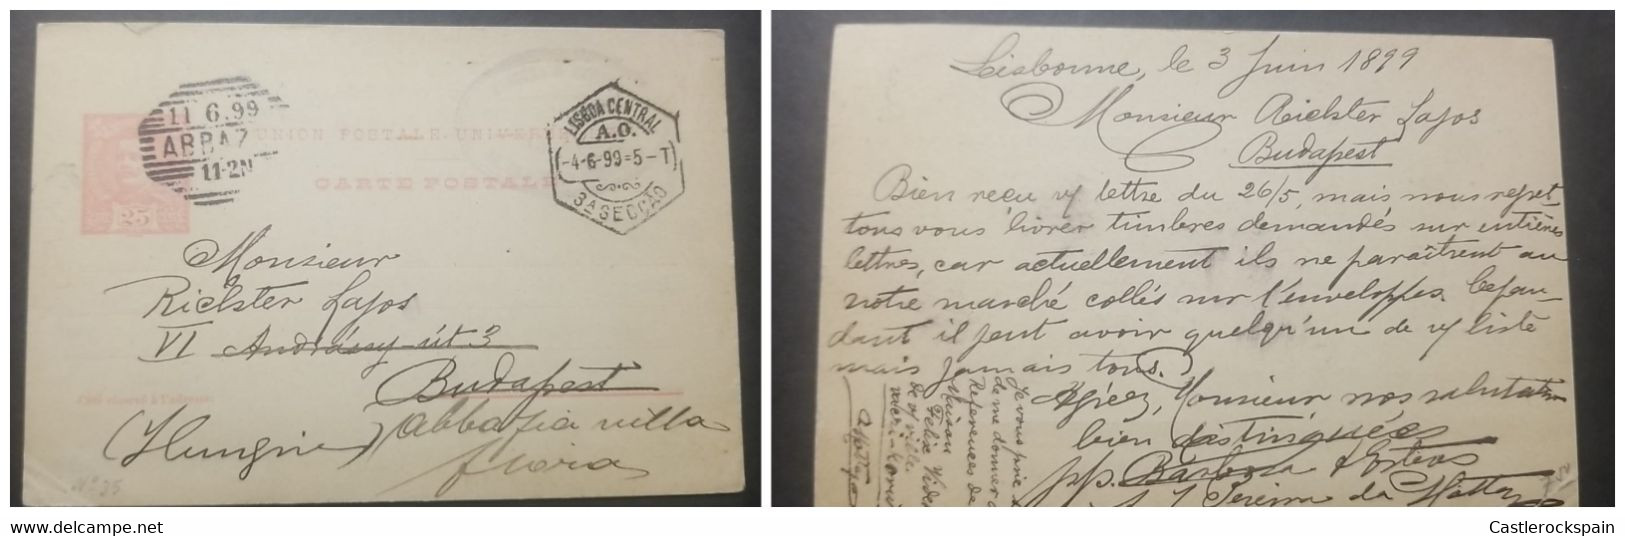 11 6.99
ABBAZ
11-2N
UNION POSTALE UNIVERSE
CARTE POSTALE
25
LISBOA CENTRAL
A.O.
-4-6-99=5-T
3ª SECÇÃO
Monsieur
Richter Lajos
VI Andrássy út 3
Budapest
Côté réservé à l'adresse.
(Hungrie) Abbazia villa
flora
Nº 35
Lisbonne, le 3 Juin 1899
Monsieur Richter Lajos
Budapest
Bien reçu v/ lettre du 26/5, mais nous regret-
tons vous livrer timbres demandés sur entières
lettres, car actuellement ils ne paraîtrent au
notre marché collés sur l'enveloppes. Cepan-
dant il peut avoir quelqu'un de v/ liste
mais jamais tous.
Agréez, Monsieur nos salutation
bien distinguées
pp. Barbosa & Esteves
Pereira da Motta
Je vous prie
de me donner
References de
Maison
Felix
de v/ ville
Castlerockspain